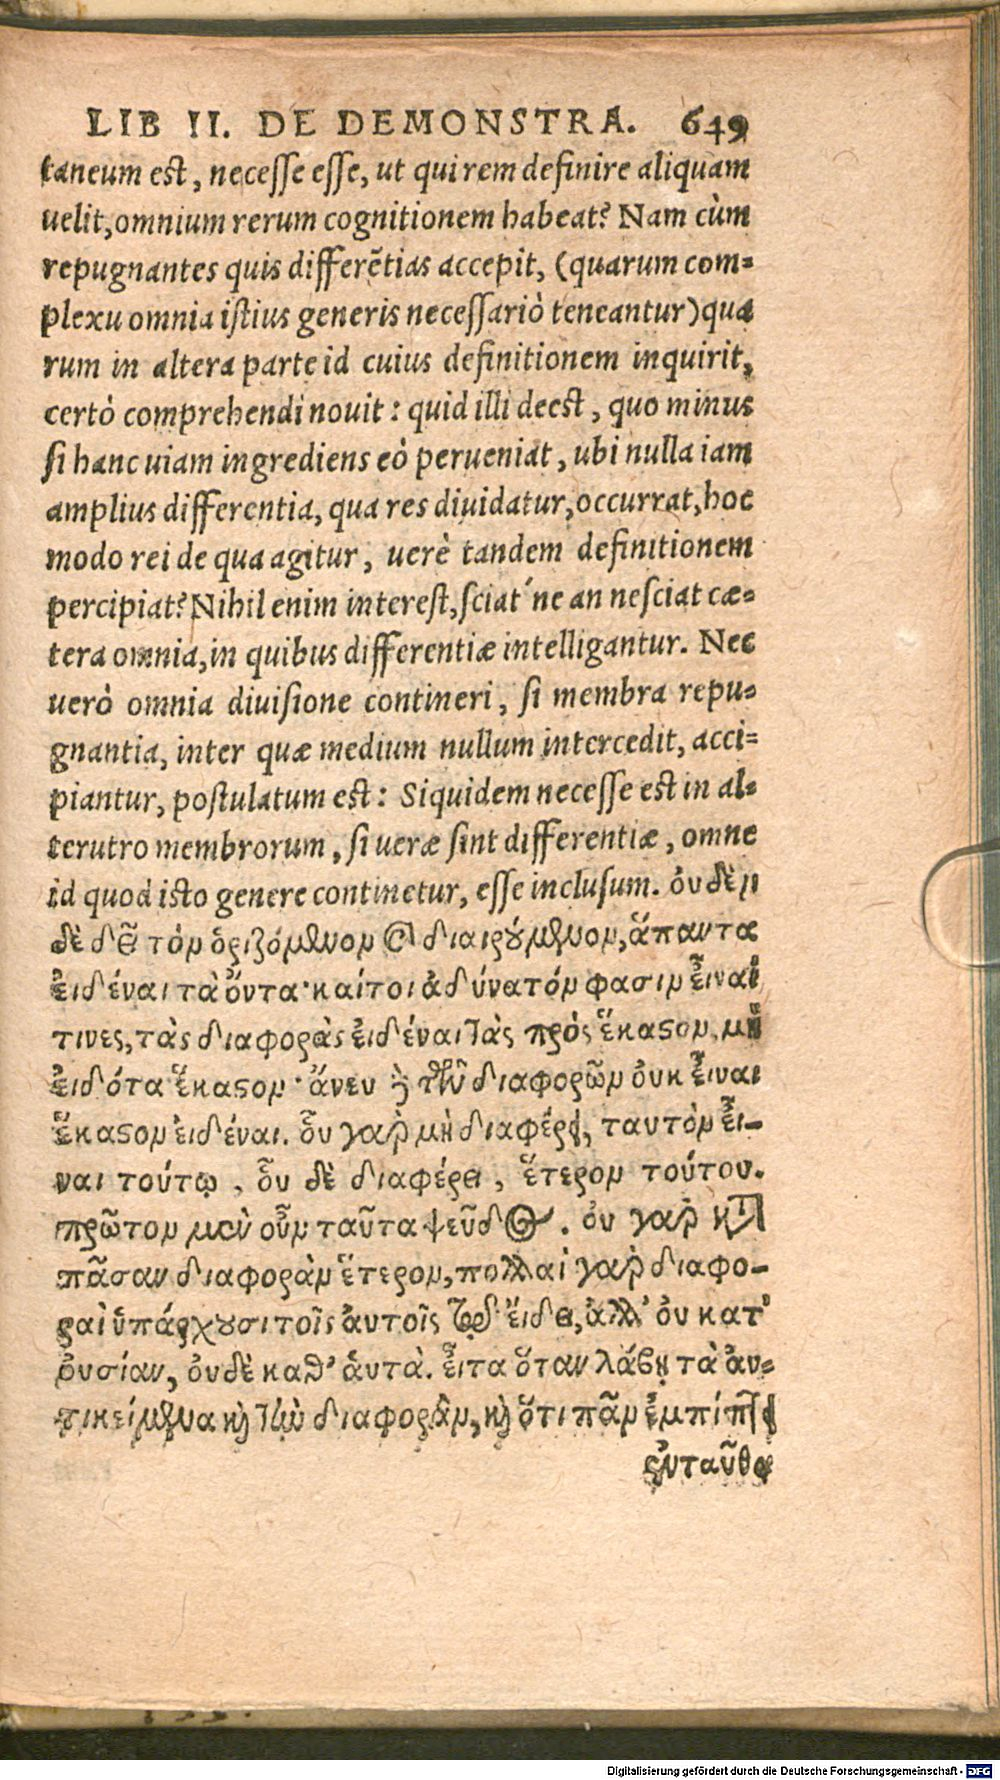 LIB II. DE DEMONSTRA. 649
taneum est, necesse esse, ut qui rem definire aliquam
uelit, omnium rerum cognitionem habeat? Nam cùm
repugnantes quis differẽtias accepit, (quarum com=
plexu omnia istius generis necessariò teneantur) qua
rum in altera parte id cuius definitionem inquirit,
certò comprehendi nouit: quid illi deest, quo minus
si hanc uiam ingrediens eò perueniat, ubi nulla iam
amplius differentia, qua res diuidatur, occurrat, hoc
modo rei de qua agitur, uerè tandem definitionem
percipiat? Nihil enim interest, sciat´ne an nesciat cæ=
tera omnia, in quibus differentiæ intelligantur. Nec
uerò omnia diuisione contineri, si membra repu=
gnantia, inter quæ medium nullum intercedit, acci=
piantur, postulatum est: Siquidem necesse est in al=
terutro membrorum, si ueræ sint differentiæ, omne
id quod isto genere continetur, esse inclusum. ὀυδὲν
δὲ δεῖ τὸν ὁριζόμενον καὶ διαιρούμενον, ἅπαντα
ἐιδέναι τὰ ὄντα· καίτοι ἀδύνατόν φασιν ἐῖναί
τινες, τὰς διαφορὰς ἐιδέναι τὰς πρὸς ἕκαστον, μὴ
ἐιδότα ἕκαστον· ἄνευ δὲ τῶν διαφορῶν ὀυκ ἐῖναι
ἕκαστον ἐιδέναι. ὃυ γαρ̀ μὴ διαφέρει, ταυτὸν ἐῖ-
ναι τούτῳ, ὃυ δὲ διαφέρει, ἕτερον τούτου.
πρῶτον μὲν οὖν ταῦτα ψεῦδος. ὀυ γαρ̀ κατὰ
πᾶσαν διαφορὰν ἕτερον, πολλαὶ γαρ̀ διαφο-
ραὶ ὑπάρχουσι τοῖς ἀυτοῖς τῷ ἔιδει, ἀλλ’ ὀυ κατ’
ὀυσίαν, ὀυδὲ καθ’ ἁυτὰ. ἐῖτα ὅταν λάβῃ τὰ ἀν-
τικείμενα καὶ τὴν διαφορὰν, καὶ ὅτι πᾶν ἐμπίπτει
ἐνταῦθα
Digitalisierung gefördert durch die Deutsche Forschungsgemeinschaft - DFG